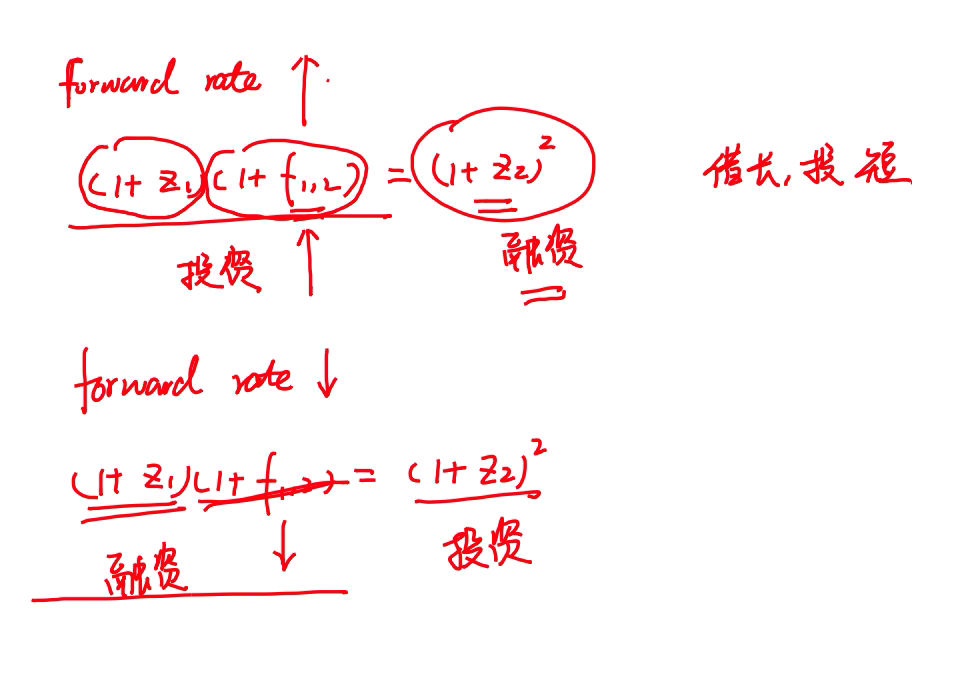 forward rate ↑
(1+ z₁)(1+ f₁,₂) = (1+ z₂)² 借长,投短
投资 ↑ 融资
forward rate ↓
(1+ z₁)(1+ f₁,₂) = (1+ z₂)²
融资 ↓ 投资